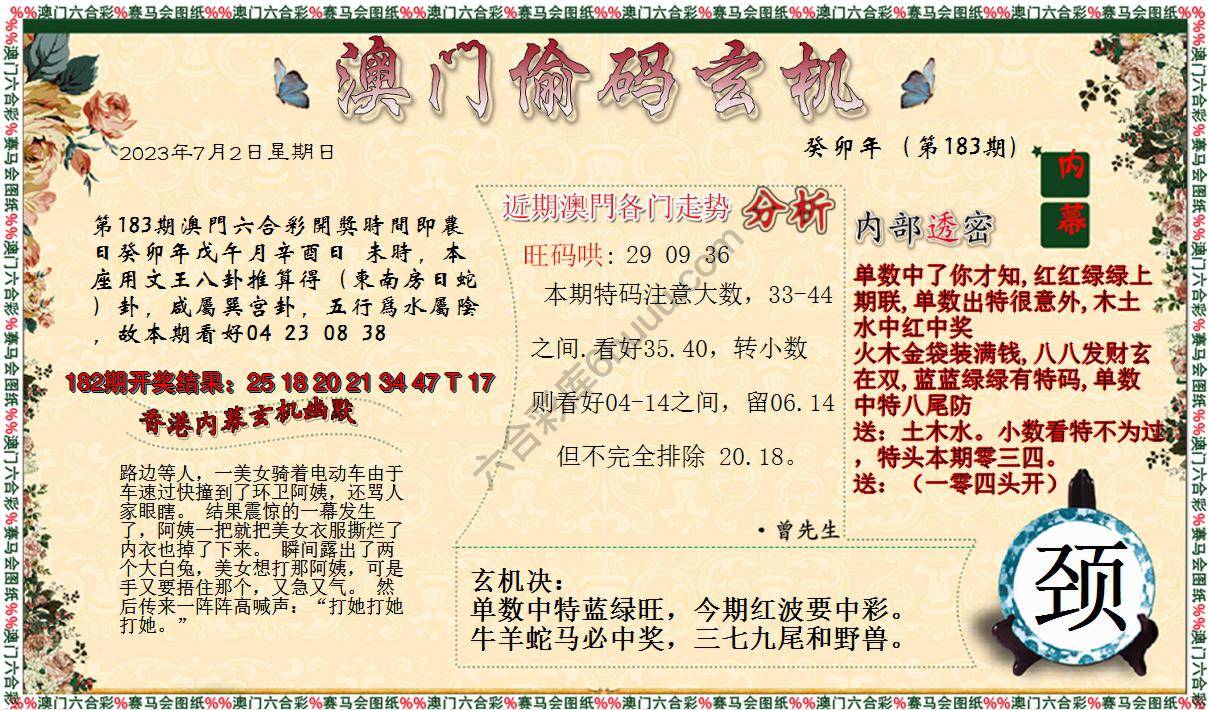 %%澳门六合彩%赛马会图纸%%澳门六合彩%赛马会图纸%%澳门六合彩%赛马会图纸%%澳门六合彩%赛马会图纸%%澳门六合彩%赛马会图纸%%澳门六合彩%赛马会图纸%%
澳门偷码玄机
2023年7月2日星期日
癸卯年（第183期）
内
幕
第183期澳門六合彩開獎時間即農
日癸卯年戊午月辛酉日 未時，本
座用文王八卦推算得（東南房日蛇
）卦，咸屬巽宫卦，五行爲水屬陰
，故本期看好04 23 08 38
182期开奖结果：25 18 20 21 34 47 T 17
香港内幕玄机幽默
路边等人，一美女骑着电动车由于
车速过快撞到了环卫阿姨，还骂人
家眼瞎。 结果震惊的一幕发生
了，阿姨一把就把美女衣服撕烂了
内衣也掉了下来。 瞬间露出了两
个大白兔，美女想打那阿姨，可是
手又要捂住那个，又急又气。 然
后传来一阵阵高喊声：“打她打她
打她。”
近期澳門各门走势 分析
旺码哄: 29 09 36
本期特码注意大数，33-44
之间.看好35.40，转小数
则看好04-14之间，留06.14
但不完全排除 20.18。
·曾先生
内部透密
单数中了你才知,红红绿绿上
期联,单数出特很意外,木土
水中红中奖
火木金袋装满钱,八八发财玄
在双,蓝蓝绿绿有特码,单数
中特八尾防
送：土木水。小数看特不为过
，特头本期零三四。
送：（一零四头开）
玄机决：
单数中特蓝绿旺，今期红波要中彩。
牛羊蛇马必中奖，三七九尾和野兽。
颈
%%澳门六合彩%赛马会图纸%%澳门六合彩%赛马会图纸%%澳门六合彩%赛马会图纸%%澳门六合彩%赛马会图纸%%澳门六合彩%赛马会图纸%%澳门六合彩%赛马会图纸%%